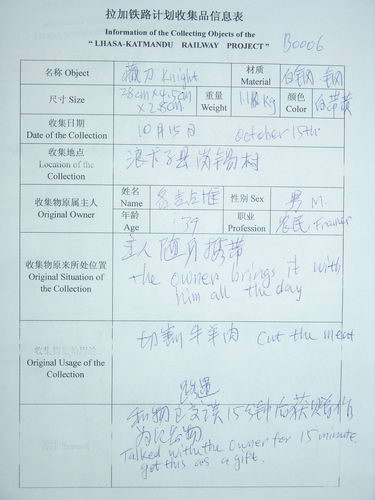 拉加铁路计划收集品信息表
Information of the Collecting Objects of the
“ LHASA-KATMANDU RAILWAY PROJECT” B0006
名称 Object 藏刀 Knight 材质 Material 白铜、钢
尺寸 Size 28cm×4.5cm×2.8cm 重量 Weight kg 颜色 Color 白带黄
收集日期 Date of the Collection 10月15日 October 15th.
收集地点 Location of the Collection 浪卡子县岗锦村
收集物原属主人 Original Owner 姓名 Name 多吉占堆 性别 Sex 男 M.
年龄 Age 39 职业 Profession 农民 Framer
收集物原来所处位置
Original Situation of
the Collection
主人随身携带
the owner brings it with
him all the day
Original Usage of the
Collection
切割牛羊肉 cut the meat
和物主交谈15分钟后获赠作
为礼物
Talked with the owner for 15 minute
get this as a gift.